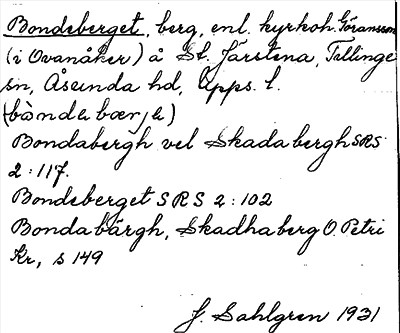 Bondeberget, berg, enl. kyrkoh. Göransson
(i Ovanåker) å St. Järstena, Tillinge
sn, Åsunda hd, Upps. l.
(bònda bærje)
Bondabergh vel Skadabergh SRS
2:117.
Bondeberget SRS 2:102
Bondabärgh, Skadhaberg O. Petri
Kr, s 149
J. Sahlgren 1931